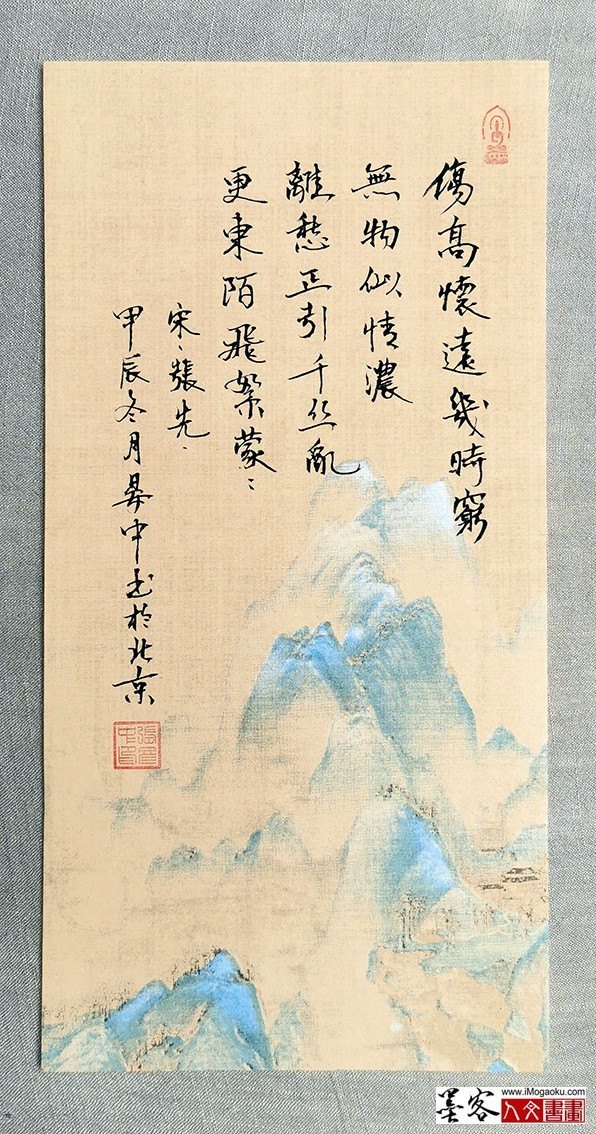 傷高懷遠幾時窮
無物似情濃
離愁正引千絲亂
更東陌飛絮蒙蒙
宋張先
甲辰冬月昇中書於北京
墨客
www.iMogaoku.com
人文書畫